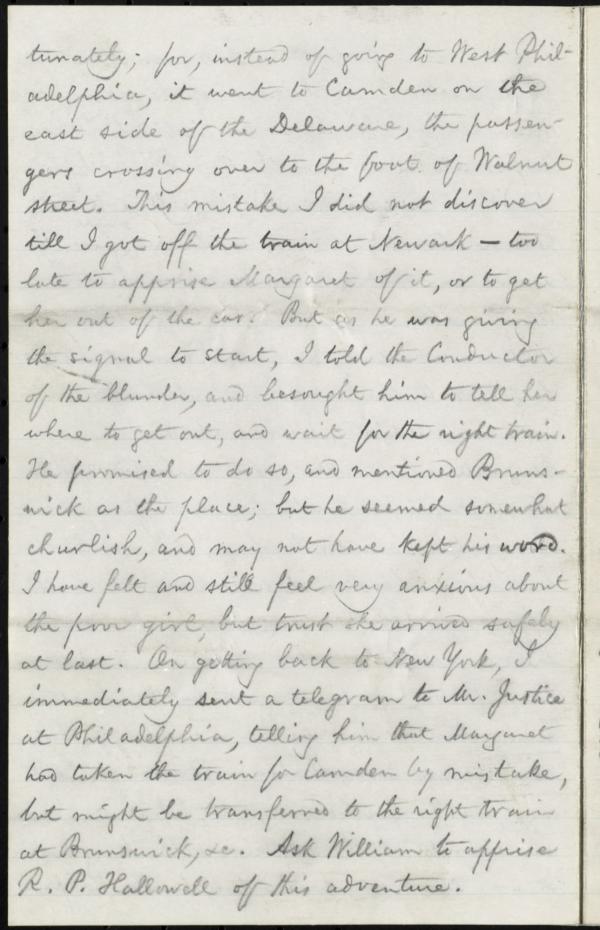 tunately; for, instead of going to West Phil-
adelphia, it went to Camden on the
east side of the Delaware, the passen-
gers crossing over to the foot of Walnut
street. This mistake I did not discover
till I got off the train at Newark — too
late to apprise Margaret of it, or to get
her out of the car. But as he was giving
the signal to start, I told the Conductor
of the blunder, and besought him to tell her
where to get out, and wait for the right train.
He promised to do so, and mentioned Bruns-
wick as the place; but he seemed somewhat
churlish, and may not have kept his word.
I have felt and still feel very anxious about
the poor girl, but trust she arrived safely
at last. On getting back to New York, I
immediately sent a telegram to Mr. Justice
at Philadelphia, telling him that Margaret
had taken the train for Camden by mistake,
but might be transferred to the right train
at Brunswick, &c. Ask William to apprise
R. P. Hallowell of this adventure.